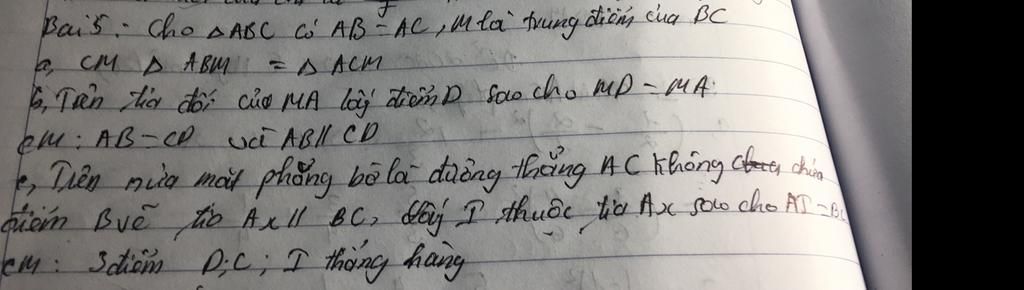 Bài 5: Cho △ABC có AB = AC, M là trung điểm của BC
a, CM △ ABM = △ ACM
b, Trên tia đối của MA lấy điểm D sao cho MD = MA.
CM: AB = CD và AB // CD
c, Trên nửa mặt phẳng bờ là đường thẳng AC không chứa
điểm B vẽ tia Ax // BC, lấy I thuộc tia Ax sao cho AI = BC
CM: 3 điểm D; C; I thẳng hàng